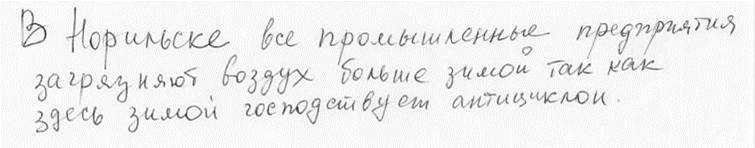 В Норильске все промышленные предприятия
загрязняют воздух больше зимой так как
здесь зимой господствует антициклон.